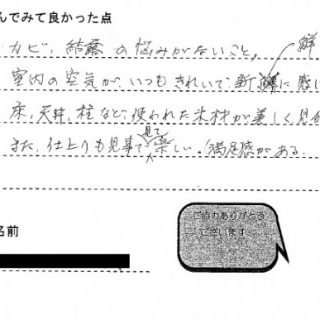 んでみて良かった点
カビ、結露の悩みがないこと。
室内の空気が、いつもきれいで、新鮮に感じ
床、天井、柱など、使われた木材が美しく見
また、仕上りも見事で見て楽しい。満足感がある。
ご協力ありがとう
ございます
名前